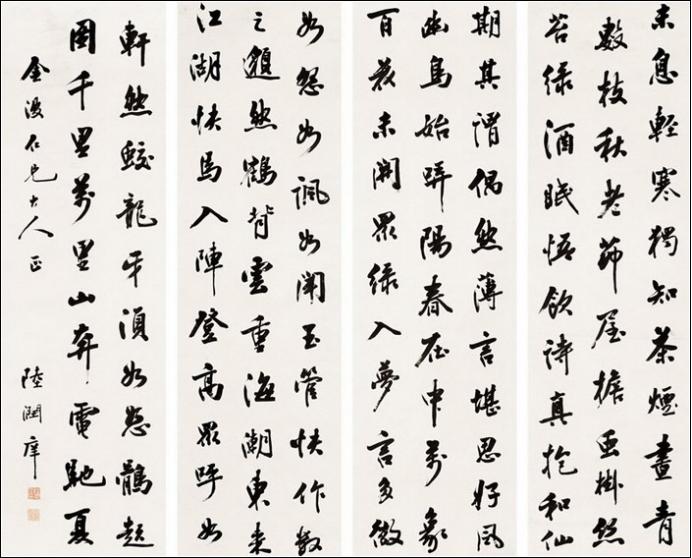 未息輕寒獨知茶煙晝青
數枝秋老茆屋掛然
苔綠酒眠悟飲詩真抱和仙
期其謂偶然薄言堪思好風
幽鳥始哢陽春在中萬象
百花未開眾綠入夢言多微
如怨如諷如聞玉管快作數
之邈然鶴背雲重海潮東來
江湖快馬入陣登高眾呼如
軒然鮫龍牙須如怒鶻起
圖千里萬里山奔電馳夏
金仁兄大人正
陸潤庠